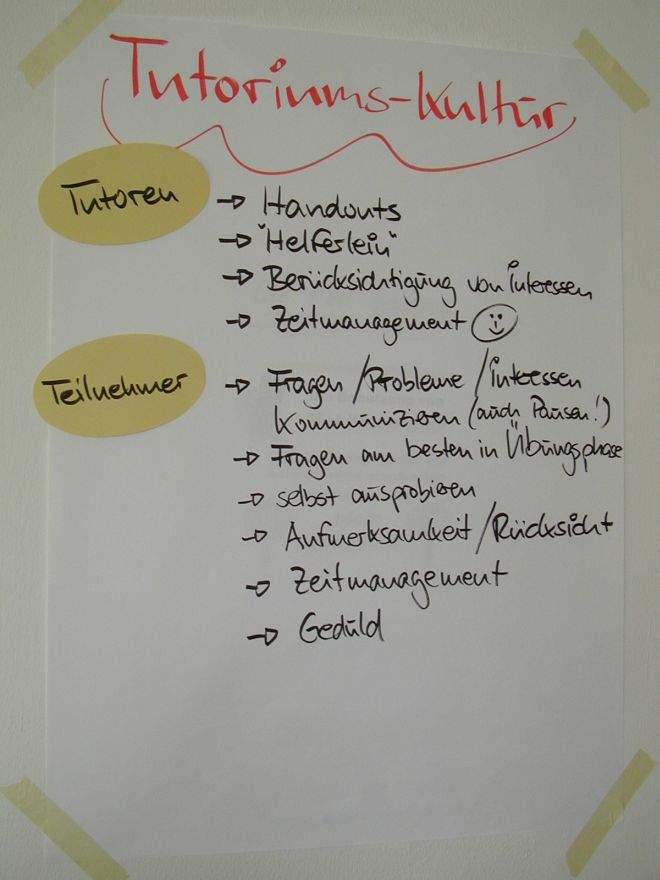 Tutoriums-Kultur
Tutoren
→ Handouts
→ "Helferlein"
→ Berücksichtigung von Interessen
→ Zeitmanagement ☺
Teilnehmer
→ Fragen / Probleme / Interessen
kommunizieren (auch Pausen!)
→ Fragen am besten in Übungsphase
→ selbst ausprobieren
→ Aufmerksamkeit / Rücksicht
→ Zeitmanagement
→ Geduld